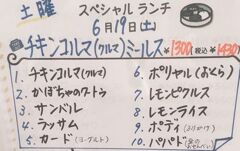 土曜
スペシャル ランチ
6月19日(土)
チキンコルマ(クルマ)ミールス ¥1300(税込¥1430)
1. チキンコルマ(クルマ)
2. かぼちゃのクートゥ
3. サンバル
4. ラッサム
5. カード(ヨーグルト)
6. ポリヤル(おくら)
7. レモンピクルス
8. レモンライス
9. ポディ(ふりかけ)
10. パパド(豆のおせんべい)